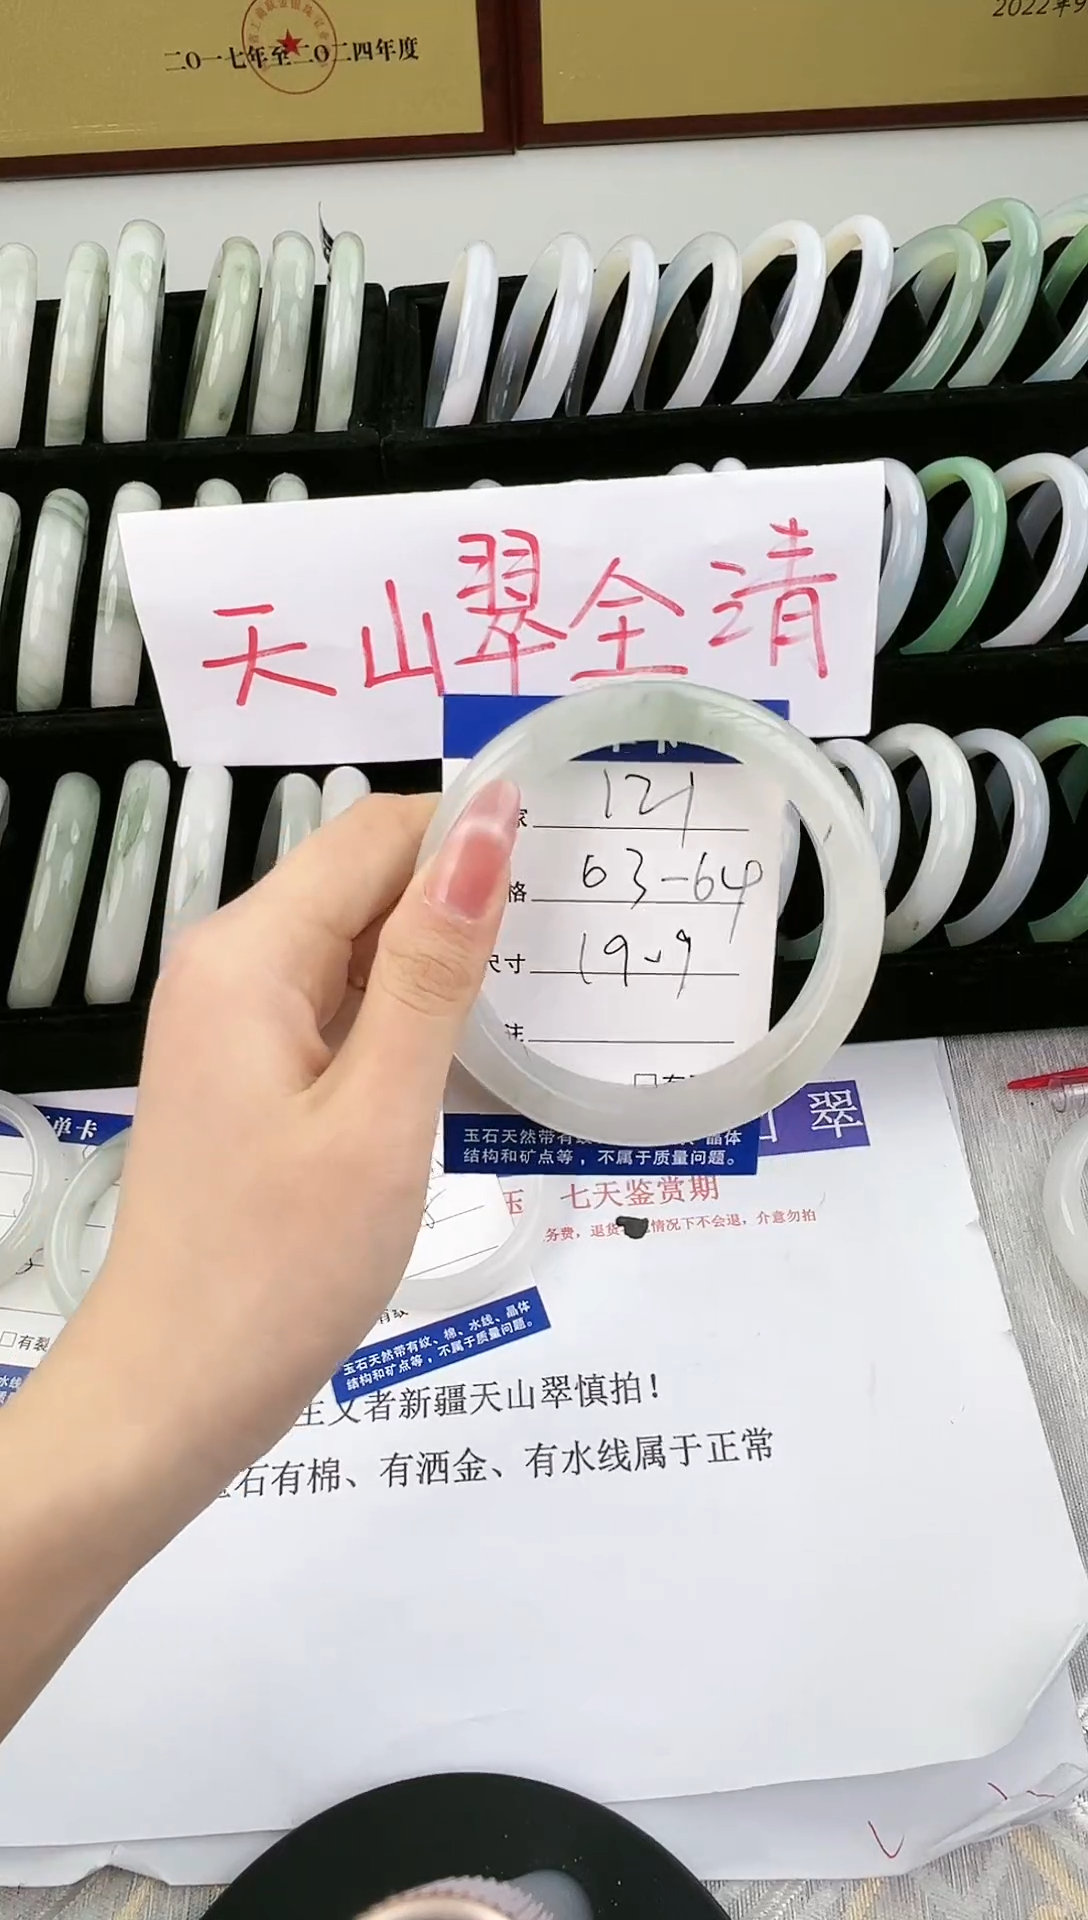 二〇一七年至二〇二四年度
2022年9
天山翠全清
卡
家 121
格 63-64
尺寸 19.9
注
单卡
玉石天然带有 晶体
结构和矿点等，不属于质量问题。
山翠
玉 七天鉴赏期
务费，退货 情况下不会退，介意勿拍
□有裂
有纹
玉石天然带有纹、棉、水线、晶体
结构和矿点等，不属于质量问题。
水线
主义者新疆天山翠慎拍！
玉石有棉、有洒金、有水线属于正常